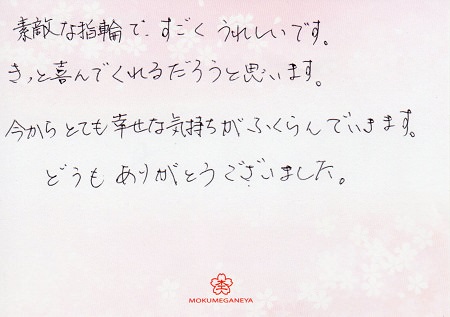 素敵な指輪で、すごくうれしいです。
きっと喜んでくれるだろうと思います。
今からとても幸せな気持ちがふくらんでいきます。
どうもありがとうございました。
MOKUMEGANEYA